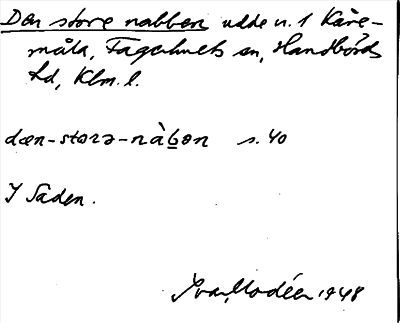 Den store nabben udde n. 1 Kåre-
måla, Fagerhults sn, Handbörds
hd, Klm. l.
dæn-storə-nàbən s. 40
I Såden.
Ivar Modéer 1948